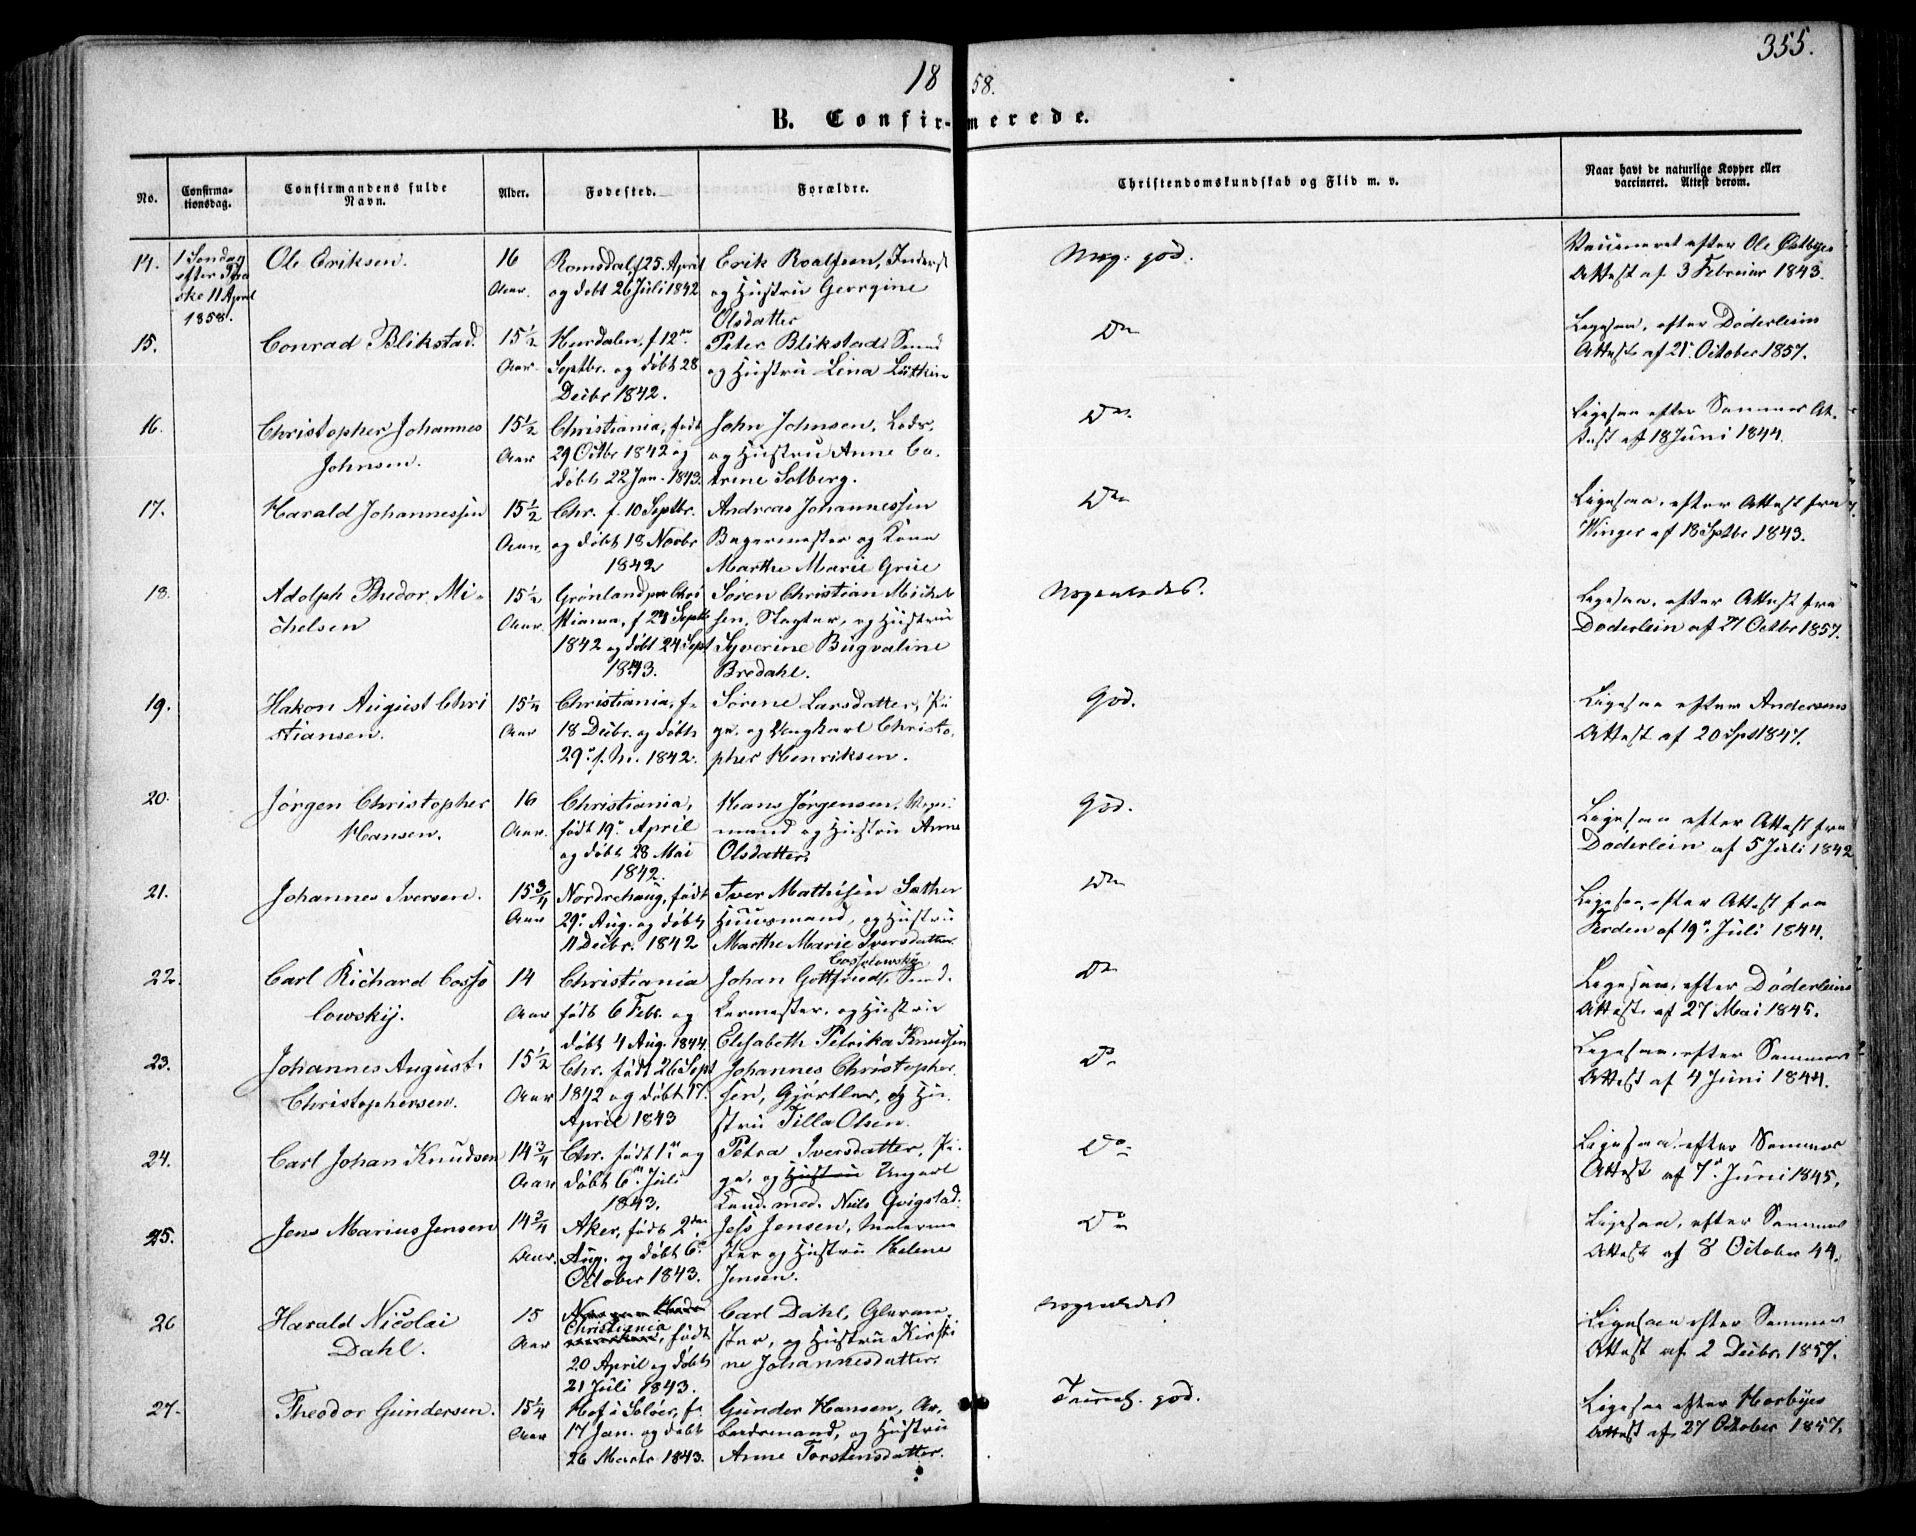 355.
1858.
B. Confirmerede.
No.
Confirmationsdag.
Confirmandens fulde Navn.
Alder.
Fødested.
Forældre.
Christendomskundskab og Flid m. v.
Naar havt de naturlige Kopper eller vaccineret. Attest derom.
14.
1 Søndag
efter Paa
ske 11 April
1858.
Ole Eriksen.
16
Aar.
Romsdal, f 25. April
og døbt 26 Juli 1842
Erik Roalfsen, Inderst
og Hustru Georgine
Olsdatter
Meg. god.
Vaccineret efter Ole Østbyes
Attest af 3 Februar 1843.
15.
Conrad Blikstad.
15 1/2
Aar.
Hurdalen, f 12te
Septbr. og døbt 28
Decbr 1842.
Peter Blikstad, Smed
og Hustru Lina Lütken
Do
Ligesaa, efter Döderlein
Attest af 21. October 1857.
16.
Christopher Johannes
Johnsen.
15 1/2
Aar.
Christiania, født
29 Octbr 1842 og
døbt 22 Jan. 1843.
John Johnsen, Lods,
og Hustru Anne Ca-
trine Solberg.
Do
Ligesaa efter Sommer At-
test af 18 Juni 1844.
17.
Harald Johannessen
15 1/2
Aar.
Chr. f. 10 Septbr.
og døbt 18 Novbr
1842
Andreas Johannessen
Bagermester og Kone
Marthe Marie Grüe
Do
Ligesaa, efter Attest fra
Winger af 18 Septbr 1843.
18.
Adolph Thedor Mi-
chelsen
15 1/2
Aar.
Grønland, Chri
stiania, f 29 Septb
1842 og døbt 24 Sept
1843.
Søren Christian Michel
sen, Slagter, og Hustru
Syverine Bugvaline
Bredahl.
Nogenledes.
Ligesaa, efter Attest fra
Döderlein af 21 Octbr 1857.
19.
Hakon August Chri
stiansen.
15 1/4
Aar
Christiania, f.
18 Decbr. og døbt
29. s. M. 1842.
Sørene Larsdatter, Pi
ge, og Ungkarl Christo-
pher Henriksen.
God.
Ligesaa efter Andersens
Attest af 20 Sept 1847.
20.
Jørgen Christopher
Hansen.
16
Aar.
Christiania,
født 19. April
og døbt 28 Mai
1842.
Hans Jørgensen, Vogn-
mand og Hustru Anne
Olsdatter.
God.
Ligesaa efter Attest fra
Döderlein af 5 Juli 1842
21.
Johannes Iversen.
15 3/4
Aar
Nordrehaug, født
29. Aug. og døbt
11 Decbr. 1842
Iver Mathisen Sæther
Huusmand, og Hustru
Marthe Marie Iversdatter.
Do
Ligesaa, efter Attest fra
af 19. Juli 1844.
22.
Carl Richard Cosso
lowskij.
14
Aar
Christiania
født 6 Feb. og
døbt 4 Aug. 1844.
Cosselowsky
Johan Gottfried, Sned
kermester, og Hustru
Elisabeth Petrika Knudsen
Do
Ligesaa, efter Døderleins
Attest af 27 Mai 1845.
23.
Johannes August
Christophersen.
15 1/2
Aar
Chr. født 26 Sept
1842 og døbt 17.
April 1843
Johannes Christopher
sen, Gjørtler, og Hu-
stru Tilla Olsen.
Do
Ligesaa, efter Sommer
Attest af 4 Juni 1844.
24.
Carl Johan Knudsen
14 3/4
Aar
Chr. født 1. og
døbt 6. Juli
1843.
Petra Iversdatter, Pi-
ge, og Hustru Ungarl
Knud. med. Niels Qvigstad.
Do
Ligesaa, efter Sommer
Attest af 7. Juni 1845.
25.
Jens Marius Jensen
14 3/4
Aar.
Aker, født 2den
Aug. og døbt 6.
October 1843.
Jess Jensen, Malerme
ster og Hustru Helene
Jensen.
Do
Ligesaa, efter Sommer
Attest af 8 October 44.
26
Harald Nicolai
Dahl.
15
Aar
Christiania
født
20 April og døbt
21 Juli 1843.
Carl Dahl, Glarme-
ster, og Hustru Kirsti
ne Johannesdatter.
Nogenledes
Ligesaa efter Sommer
Attest af 2 Decbr. 1857.
27.
Theodor Gundersen.
15 1/4
Aar
Hof i Soløer, f.
17 Jan. og døbt
26 Marts 1843.
Gunder Hansen, Ar-
beidsmand, og Hustru
Anne Torstensdatter.
god.
Ligesaa efter Hørbyes
Attest af 27 Oktober 1857.